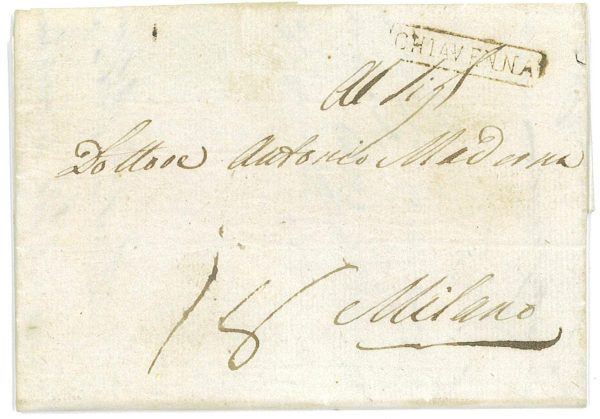 CHIAVENNA
Al Sig.
Dottore Antonio Maderna
18 Milano